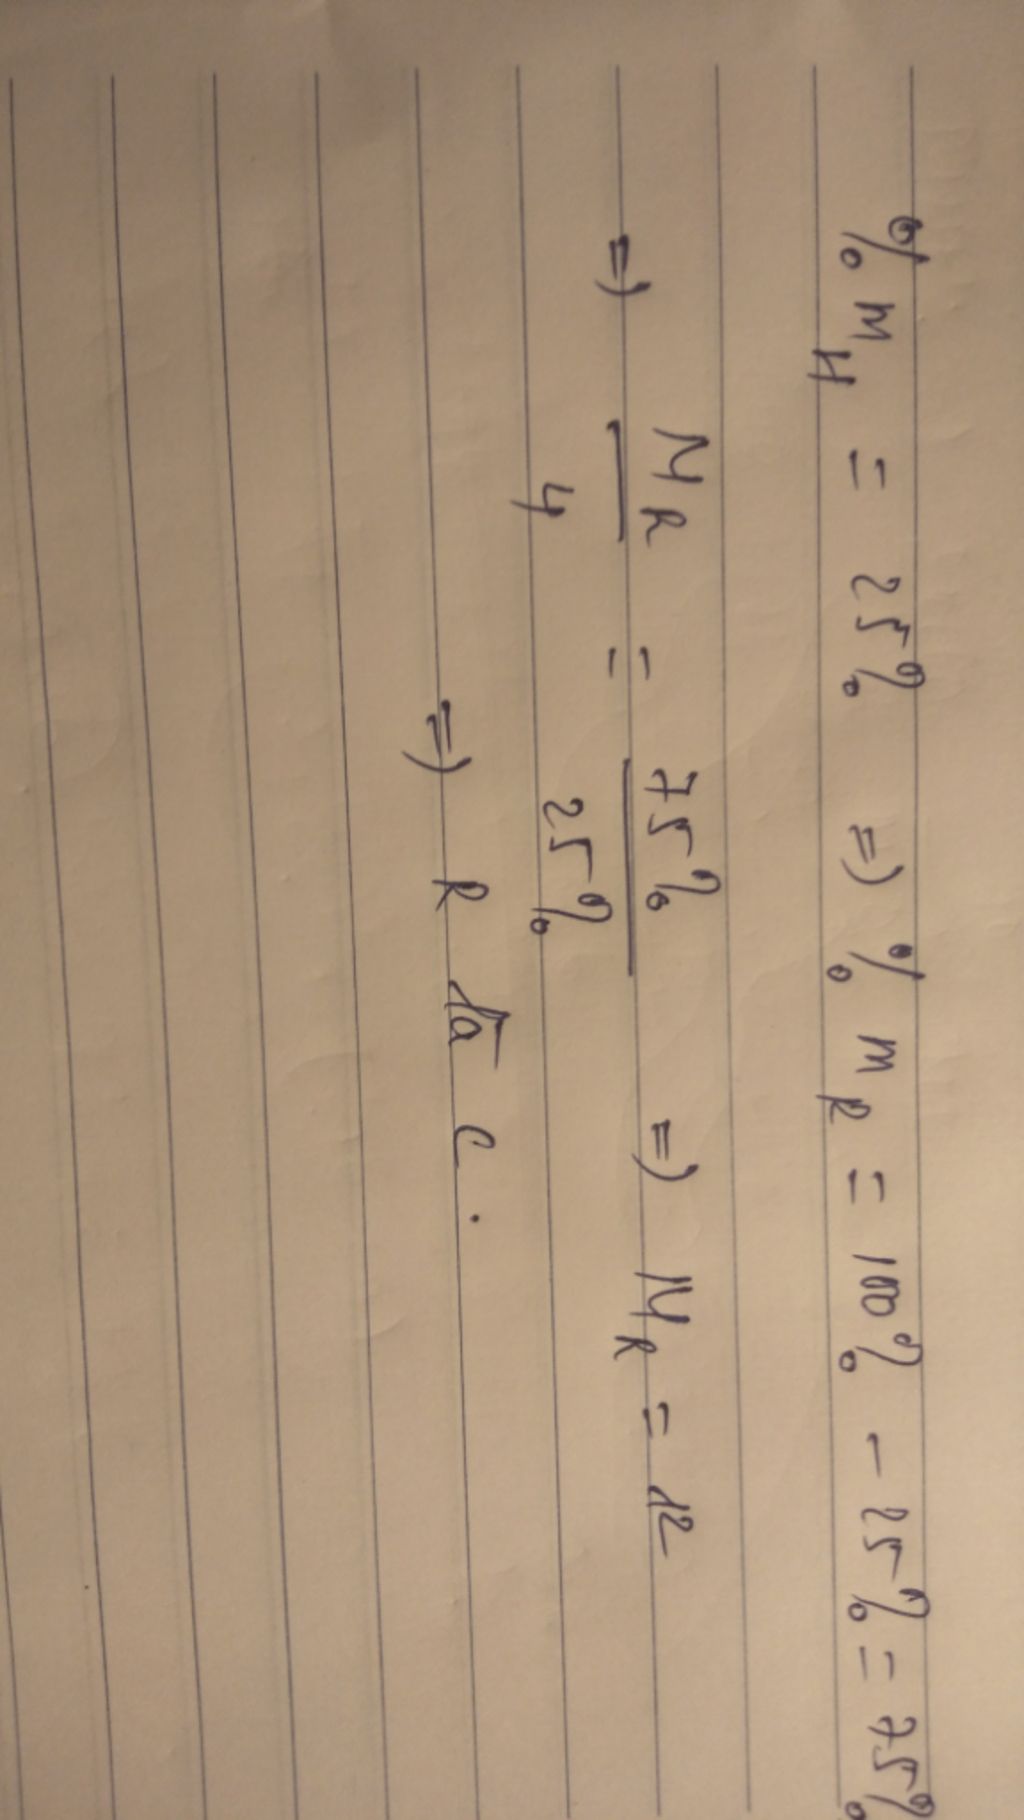 % m_H = 25% => % m_R = 100% - 25% = 75%
=> M_R / 4 = 75% / 25% => M_R = 12
=> R là C.